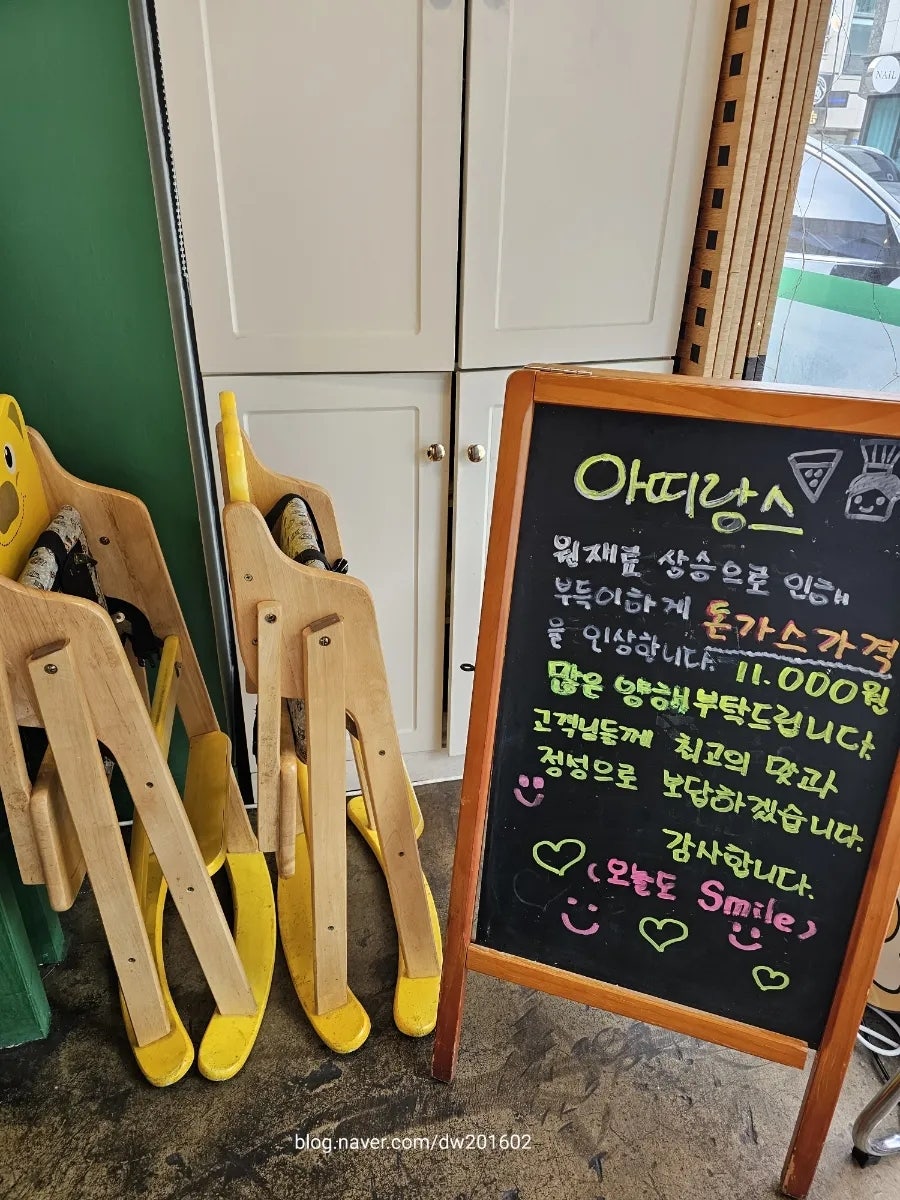 NAIL
아띠랑스
원재료 상승으로 인해
부득이하게 돈가스가격
을 인상합니다 11.000원
많은 양해부탁드립니다.
고객님들께 최고의 맛과
정성으로 보답하겠습니다.
감사합니다.
(오늘도 Smile)
blog.naver.com/dw201602